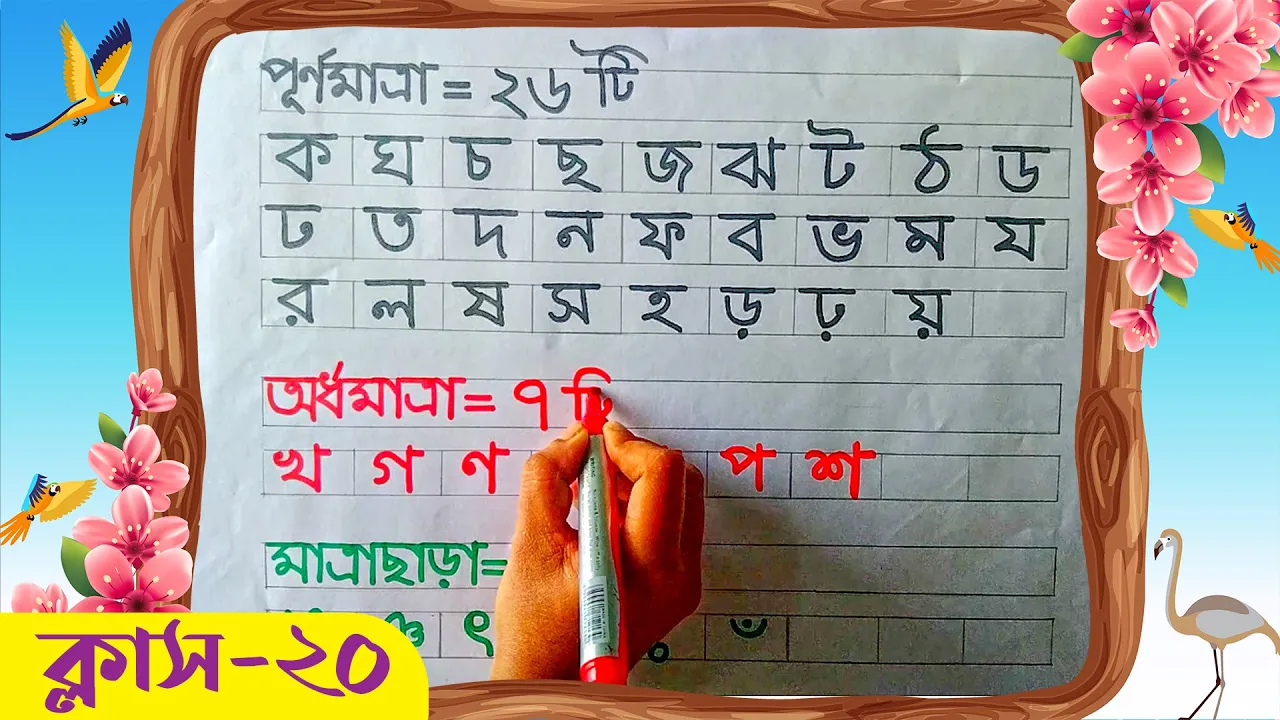 পূর্ণমাত্রা = ২৬ টি
ক ঘ চ ছ জ ঝ ট ঠ ড
ঢ ত দ ন ফ ব ভ ম য
র ল ষ স হ ড় ঢ় য়
অর্ধমাত্রা = ৭ টি
খ গ ণ প শ
মাত্রাছাড়া =
ৎ ঃ ঁ
ক্লাস-২০